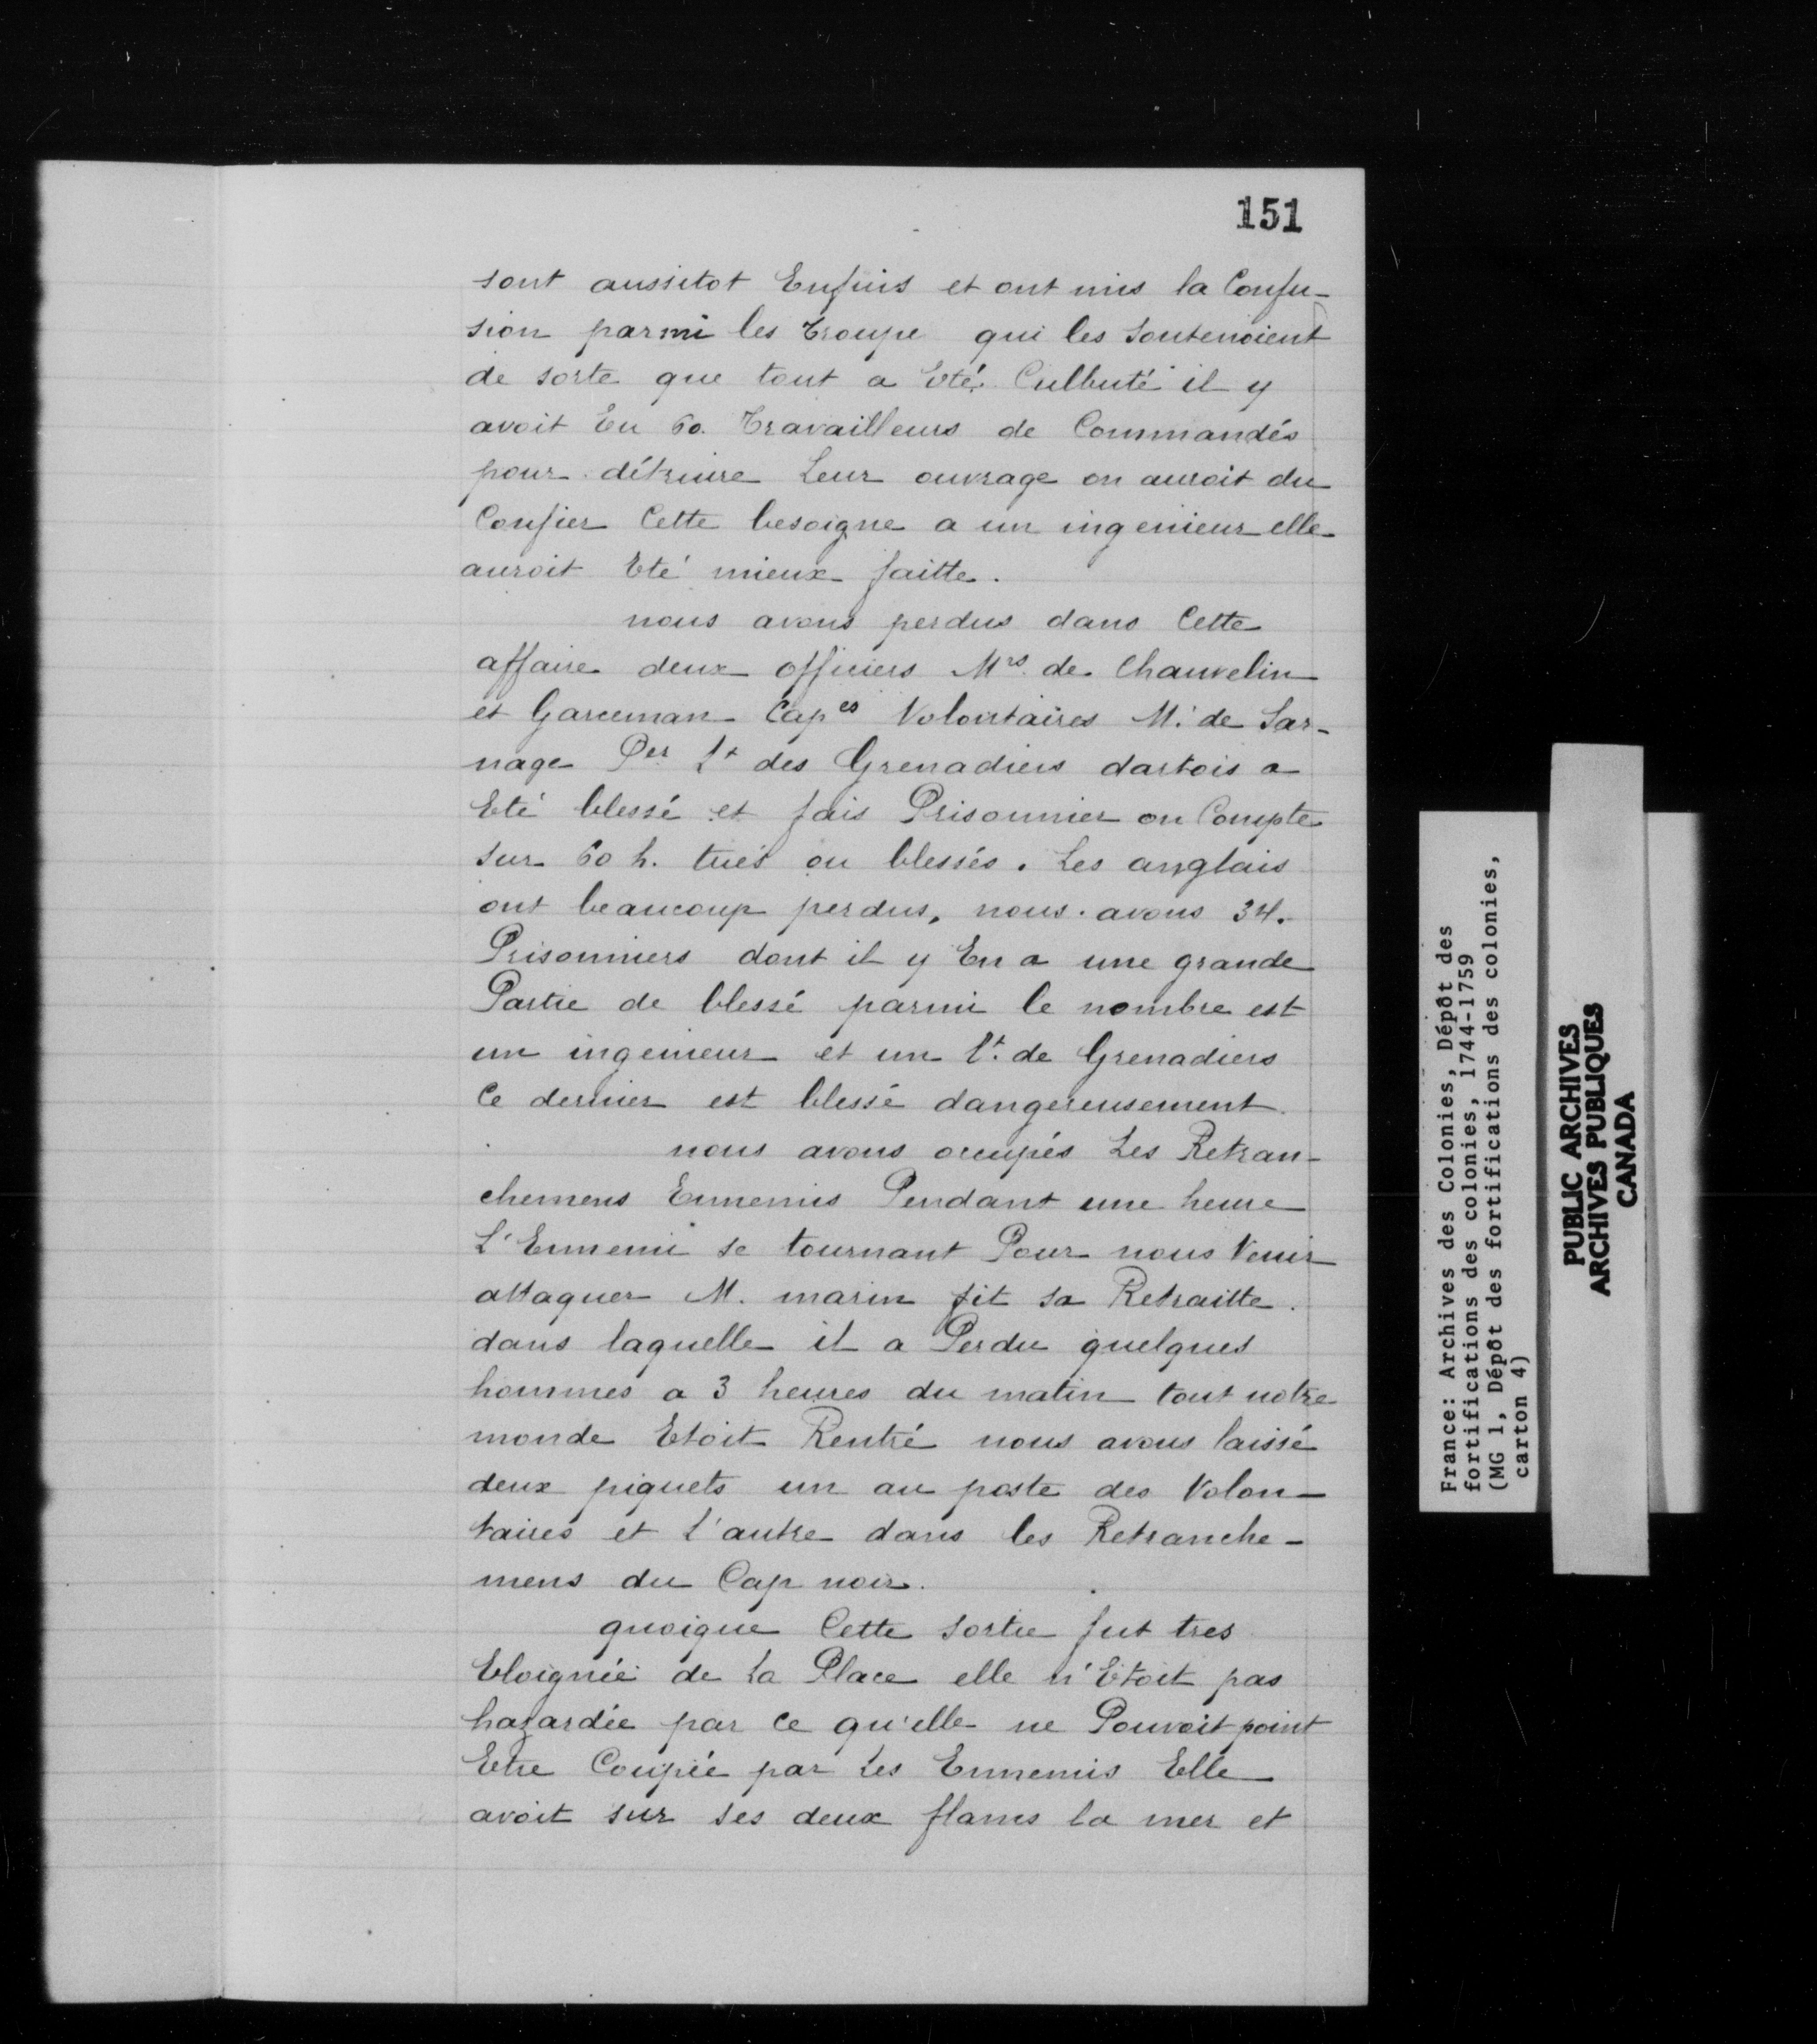 151
sont aussitot Enfuis et ont mis la Confu-
sion parmi les Troupe qui les Soutenoient
de sorte que tout a Eté Culbuté il y
avoit Eu 60. Travailleurs de Commandés
pour détruire Leur ouvrage on auroit du
Confier Cette besoigne a un ingenieur elle
auroit Eté mieux faitte.
nous avons perdus dans Cette
affaire deux officiers Mrs. de Chauvelin
et Garceman Capes Volontaires M. de Sar-
nage Per Lt des Grenadiers dartois a
Eté blessé et fais Prisonnier on Compte
sur 60 h. tués ou blessés. Les anglais
ont beaucoup perdus, nous avons 34.
Prisonniers dont il y En a une grande
Partie de blessé parmi le nombre est
un ingenieur et un Lt. de Grenadiers
Ce dernier est blessé dangereusement.
nous avons occupés Les Retran-
chemens Ennemis Pendant une heure
L'Ennemi se tournant Pour nous Venir
attaquer M. marin fit sa Retraitte.
dans laquelle il a Perdu quelques
hommes a 3 heures du matin tout notre
monde Etoit Rentré nous avons laissé
deux piquets un au poste des Volon-
taires et L'autre dans les Retranche-
mens du Cap noir.
quoique Cette sortie fut tres
Eloignée de La Place elle n'Etoit pas
hazardée par Ce qu'elle ne Pouvoit point
Etre Coupée par Les Ennemis Elle
avoit sur ses deux flancs la mer et
France: Archives des Colonies, Dépôt des
fortifications des colonies, 1744-1759
(MG 1, Dépôt des fortifications des colonies,
carton 4)
PUBLIC ARCHIVES
ARCHIVES PUBLIQUES
CANADA